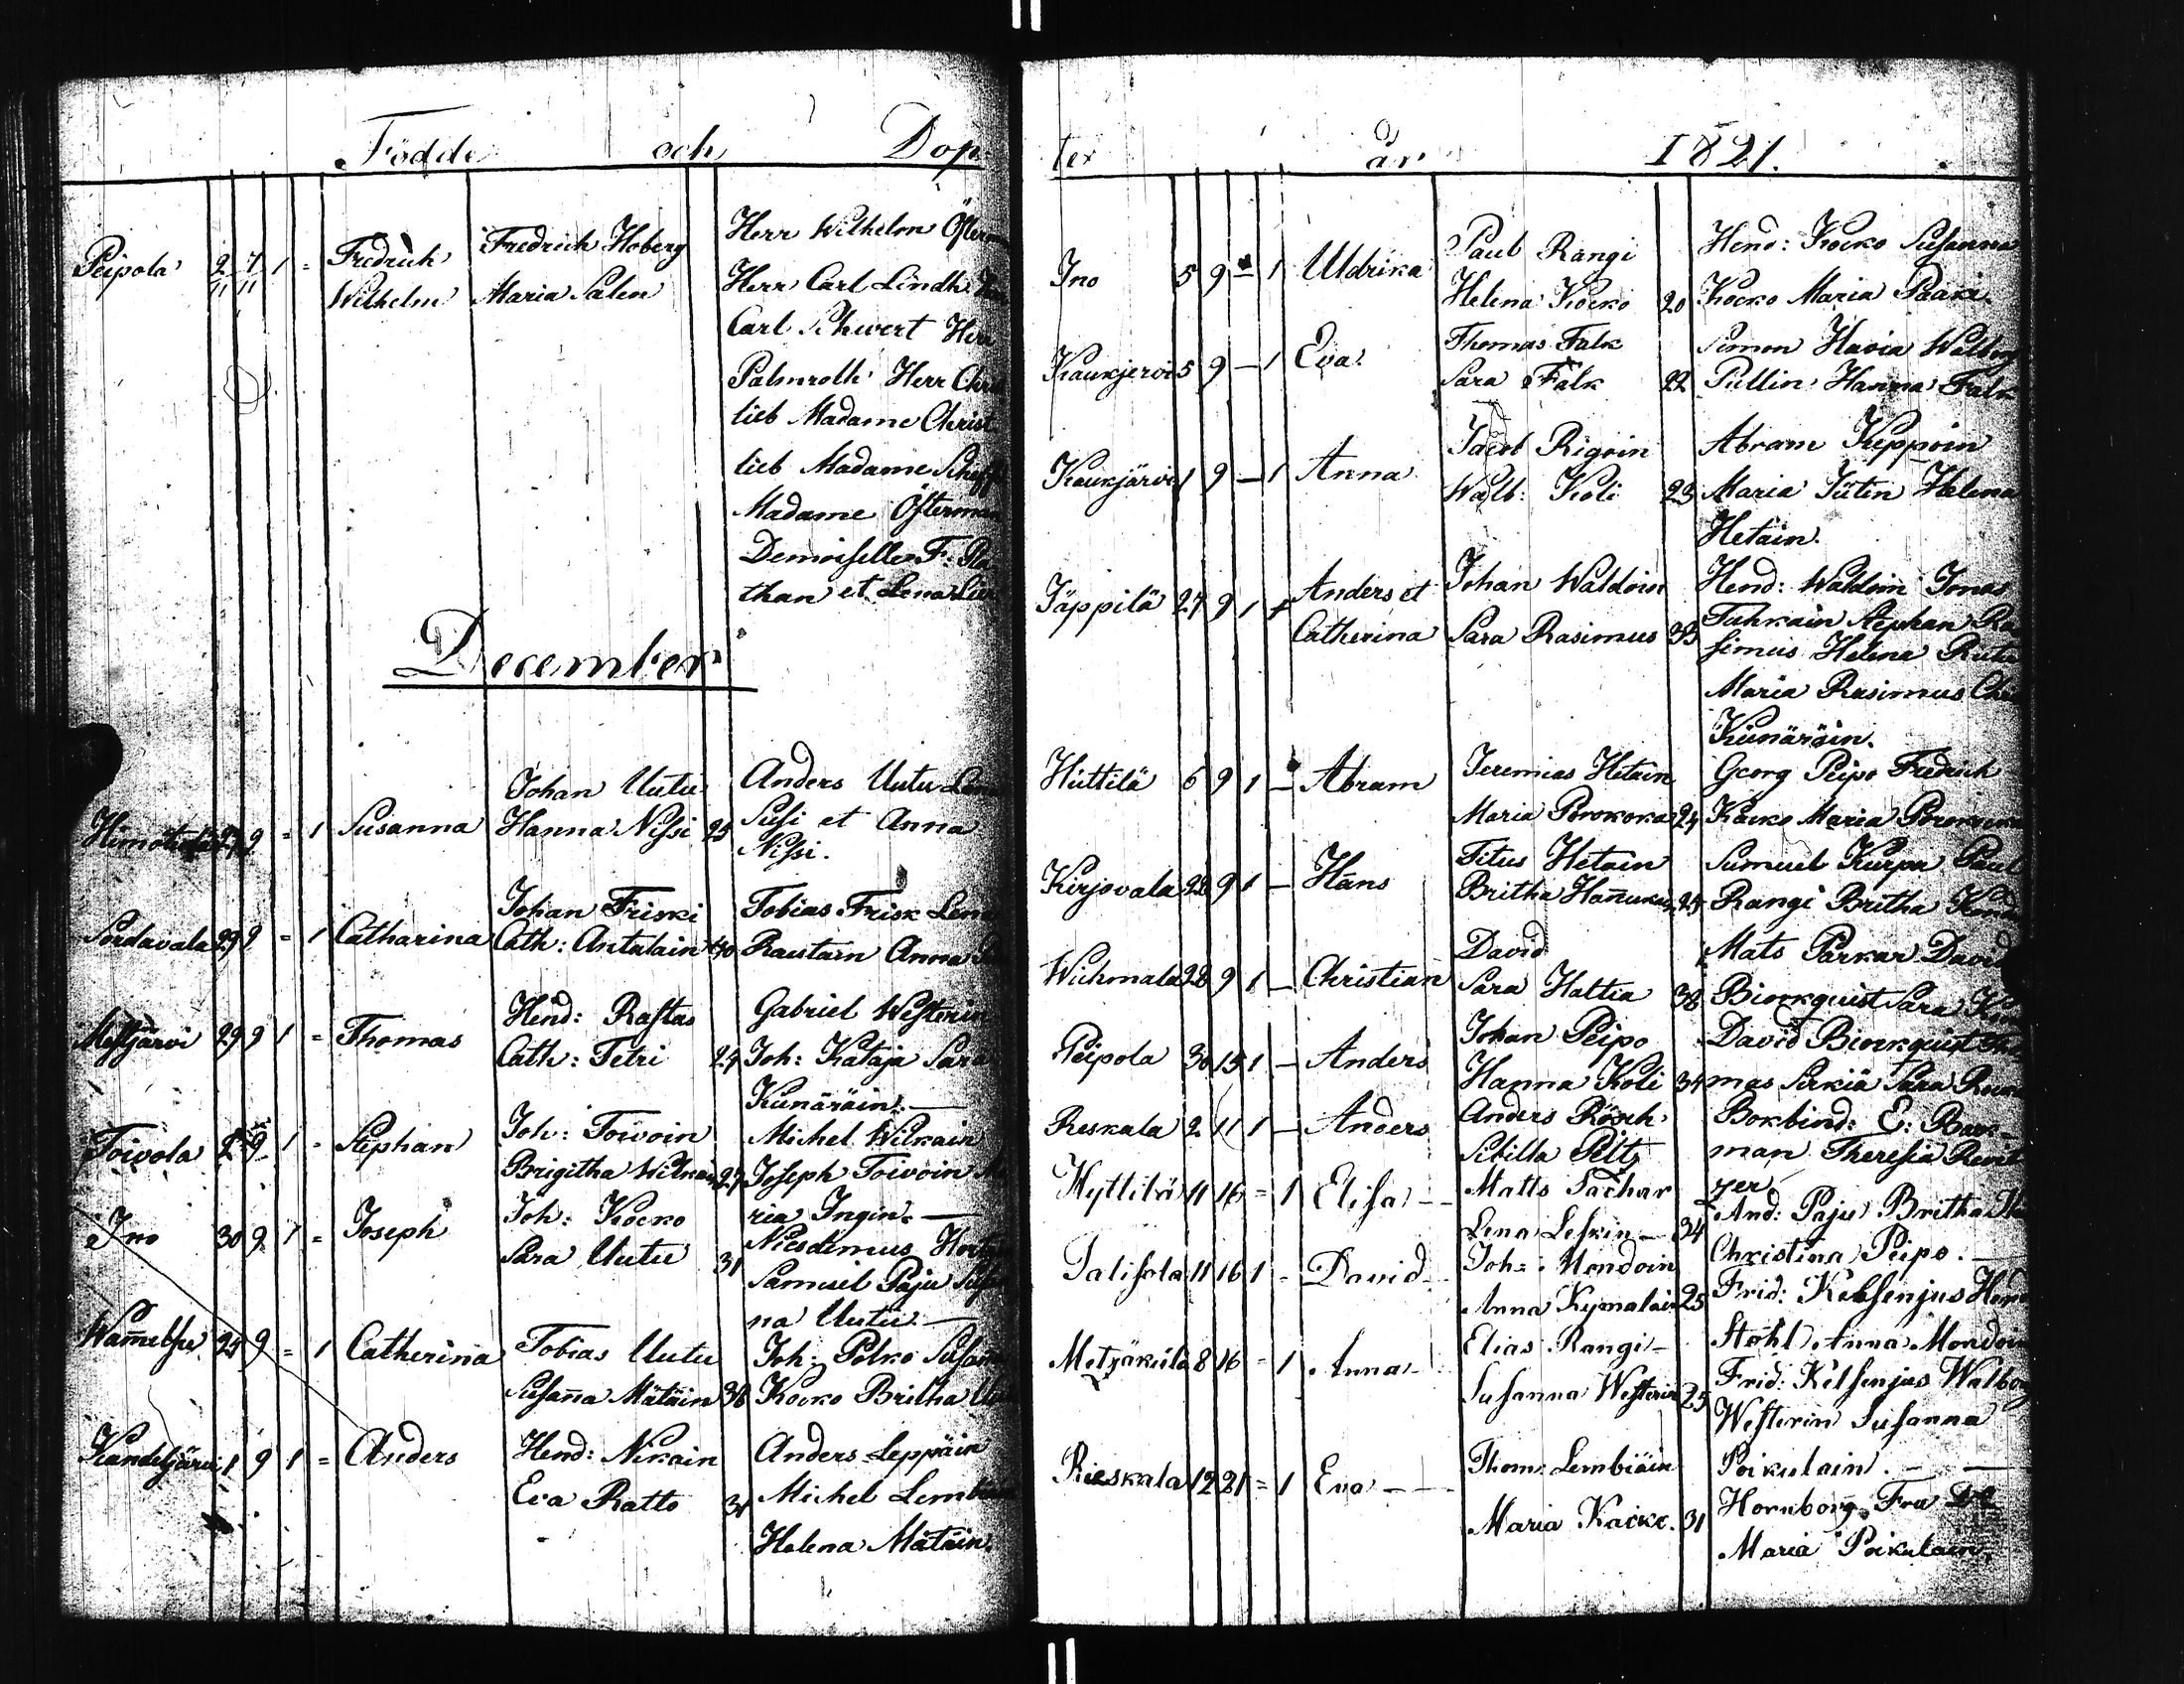 Födde och Dop
Peipola 2/11 7/11 1 = Fredrich Wilhelm
Fredrich Hoberg
Maria Salen
Herr Wilhelm
Herr Carl Lindh
Carl Schwert Herr
Palmroth Herr
lieb Madame Christ
lieb Madame
Madame Österman
Demoiselle F:
than et Lena
December
29 9 = 1 Susanna
Johan Uutu
Hanna Nissi 25
Anders Uutu
Susi et Anna
Nissi.
Sordavala 29 9 = 1 Catharina
Johan Friski
Cath: Antalain 40
Tobias Frisk Lena
Rautain Anna
Mestjärvi 29 9 1 = Thomas
Hend: Rastas
Cath: Tetri 24
Gabriel Westerin
Joh: Kataja Sara
Kunäräin. —
Toivola 9 1 = Stephan
Joh: Toivoin
Brigitha Wilkain 27
Michel Wilkain
Joseph Toivoin Ma
ria Ingin. —
Ino 30 9 1 = Joseph
Joh: Kocko
Sara Uutu 31
Nicodemus
Samuel Paju Susa
na Uutu. —
Wamelsu 25 9 = 1 Catherina
Tobias Uutu
Susana Mätäin 38
Joh: Polko Susana
Kocko Britha
Kandeljärvi 1 9 1 = Anders
Hend: Nikain
Eva Ratto 31
Anders Leppäin
Michel Lembiäin
Helena Mätäin.
ter år 1821.
Ino 5 9 — 1 Uldrika
Paul Rangi
Helena Kocko 20
Hend: Kocko Susanna
Kocko Maria Paaki.
Kaukjervi 5 9 — 1 Eva
Thomas Falk
Sara Falk 22
Simon Havia Walborg
Pullin Hanna Falk
Kaukjärvi 1 9 — 1 Anna
Jacob Rigoin
Walb: Koli 23
Abram Keppoin
Maria Jütin Helena
Hetäin.
Jäppilä 27 9 1 1 Anders et
Catherina
Johan Waldoin
Sara Rasimus 33
Hend: Waldoin Jonas
Tuhkain Stephan Ra
simus Helena
Maria Rasimus
Kunäräin.
Hüttilä 6 9 1 — Abram
Jeremias Hetäin
Maria Porokoka 24
Georg Peipo Fredrich
Kocko Maria
Kirjovala 28 9 1 — Hans
Titus Hetäin
Britha Hanukain 25
Samuel Kurpa Paul
Rangi Britha
Wichmala 28 9 1 — Christian
David
Sara Hattia 38
Mats Parkar David
Biorkquist Sara
Peipola 30 15 1 — Anders
Johan Peipo
Hanna Koli 34
David Biorkquist Tho
mas Sirkiä Sara
Reskala 2 11 1 — Anders
Anders Rösch
Sibilla Pelts
Bokbind: E: Bark
man Theresia Reut
zer
Hyttilä 11 16 = 1 Elisa —
Matts Sachar
Lena Leskin — 34
And: Paju Britha
Christina Peipo. —
Salisola 11 16 1 = David —
Joh: Mondoin
Anna Kymalain 25
Frid: Kelsenjus
Stohl Anna Mondoin
Metzäkülä 8 16 = 1 Anna —
Elias Rangi —
Susanna Westerin 25
Frid: Kelsenjus Walborg
Westerin Susanna
Poikulain. —
Rieskala 12 21 = 1 Eva —
Thom: Lembiäin
Maria Kacko. 31
Hornborg Fru
Maria Poikulain.